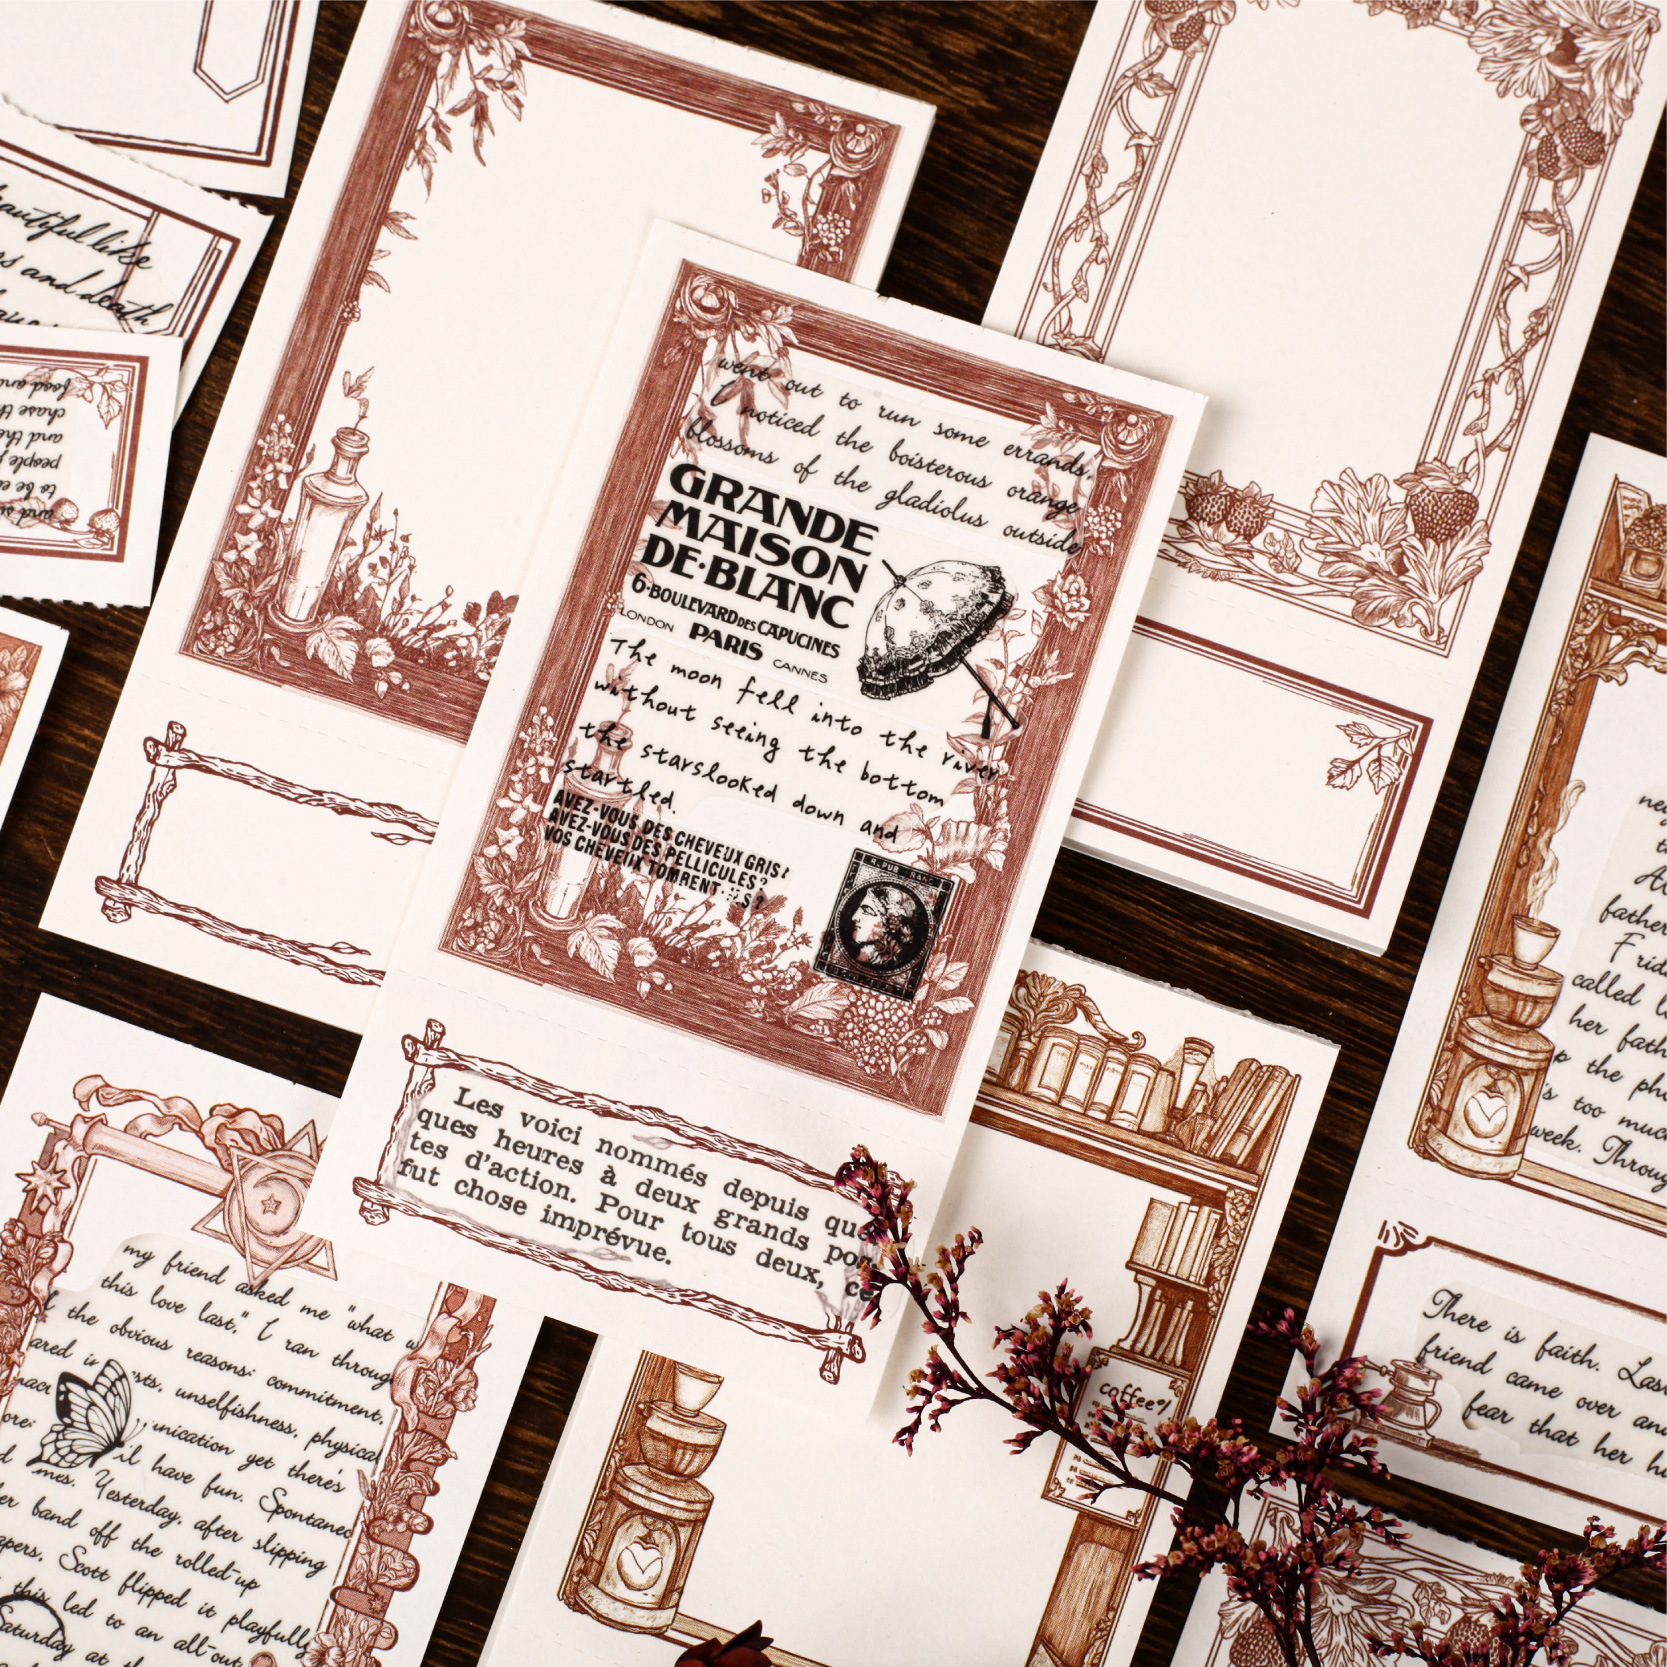 beautiful like
and death
food and
chase th
and the
people
to be e
and s
went out to run some errands,
I noticed the boisterous orange
blossoms of the gladiolus outside
GRANDE
MAISON
DE·BLANC
6·BOULEVARD DES CAPUCINES
LONDON PARIS CANNES
The moon fell into the river
without seeing the bottom
the starslooked down and
startled.
AVEZ-VOUS DES CHEVEUX GRIS?
AVEZ-VOUS DES PELLICULES?
VOS CHEVEUX TOMBENT-ILS?
Les voici nommés depuis quel
ques heures à deux grands pos
tes d'action. Pour tous deux, ce
fut chose imprévue.
my friend asked me "what w
this love last," I ran throug
the obvious reasons: commitment,
ared in sts, unselfishness, physical
unication yet there's
il have fun. Spontaneo
mes. Yesterday, after slipping
er band off the rolled-up
apers, Scott flipped it playfully
this led to an all-out
Saturday at th
coffee
father
Frid
called
her fath
p the ph
's too much
week. Throug
There is faith. Las
friend came over an
fear that her h